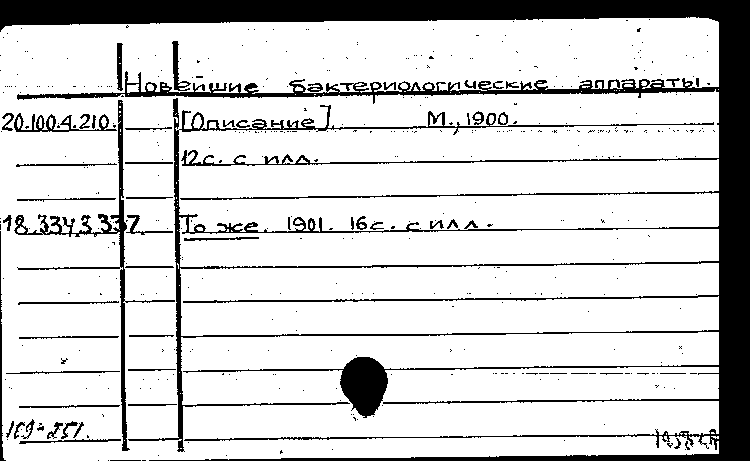 Новейшие бактериологические аппараты.
20.100.4.210. [Описание]. М., 1900.
12 с. с илл.
18.334.3.337. То же. 1901. 16 с. с илл.